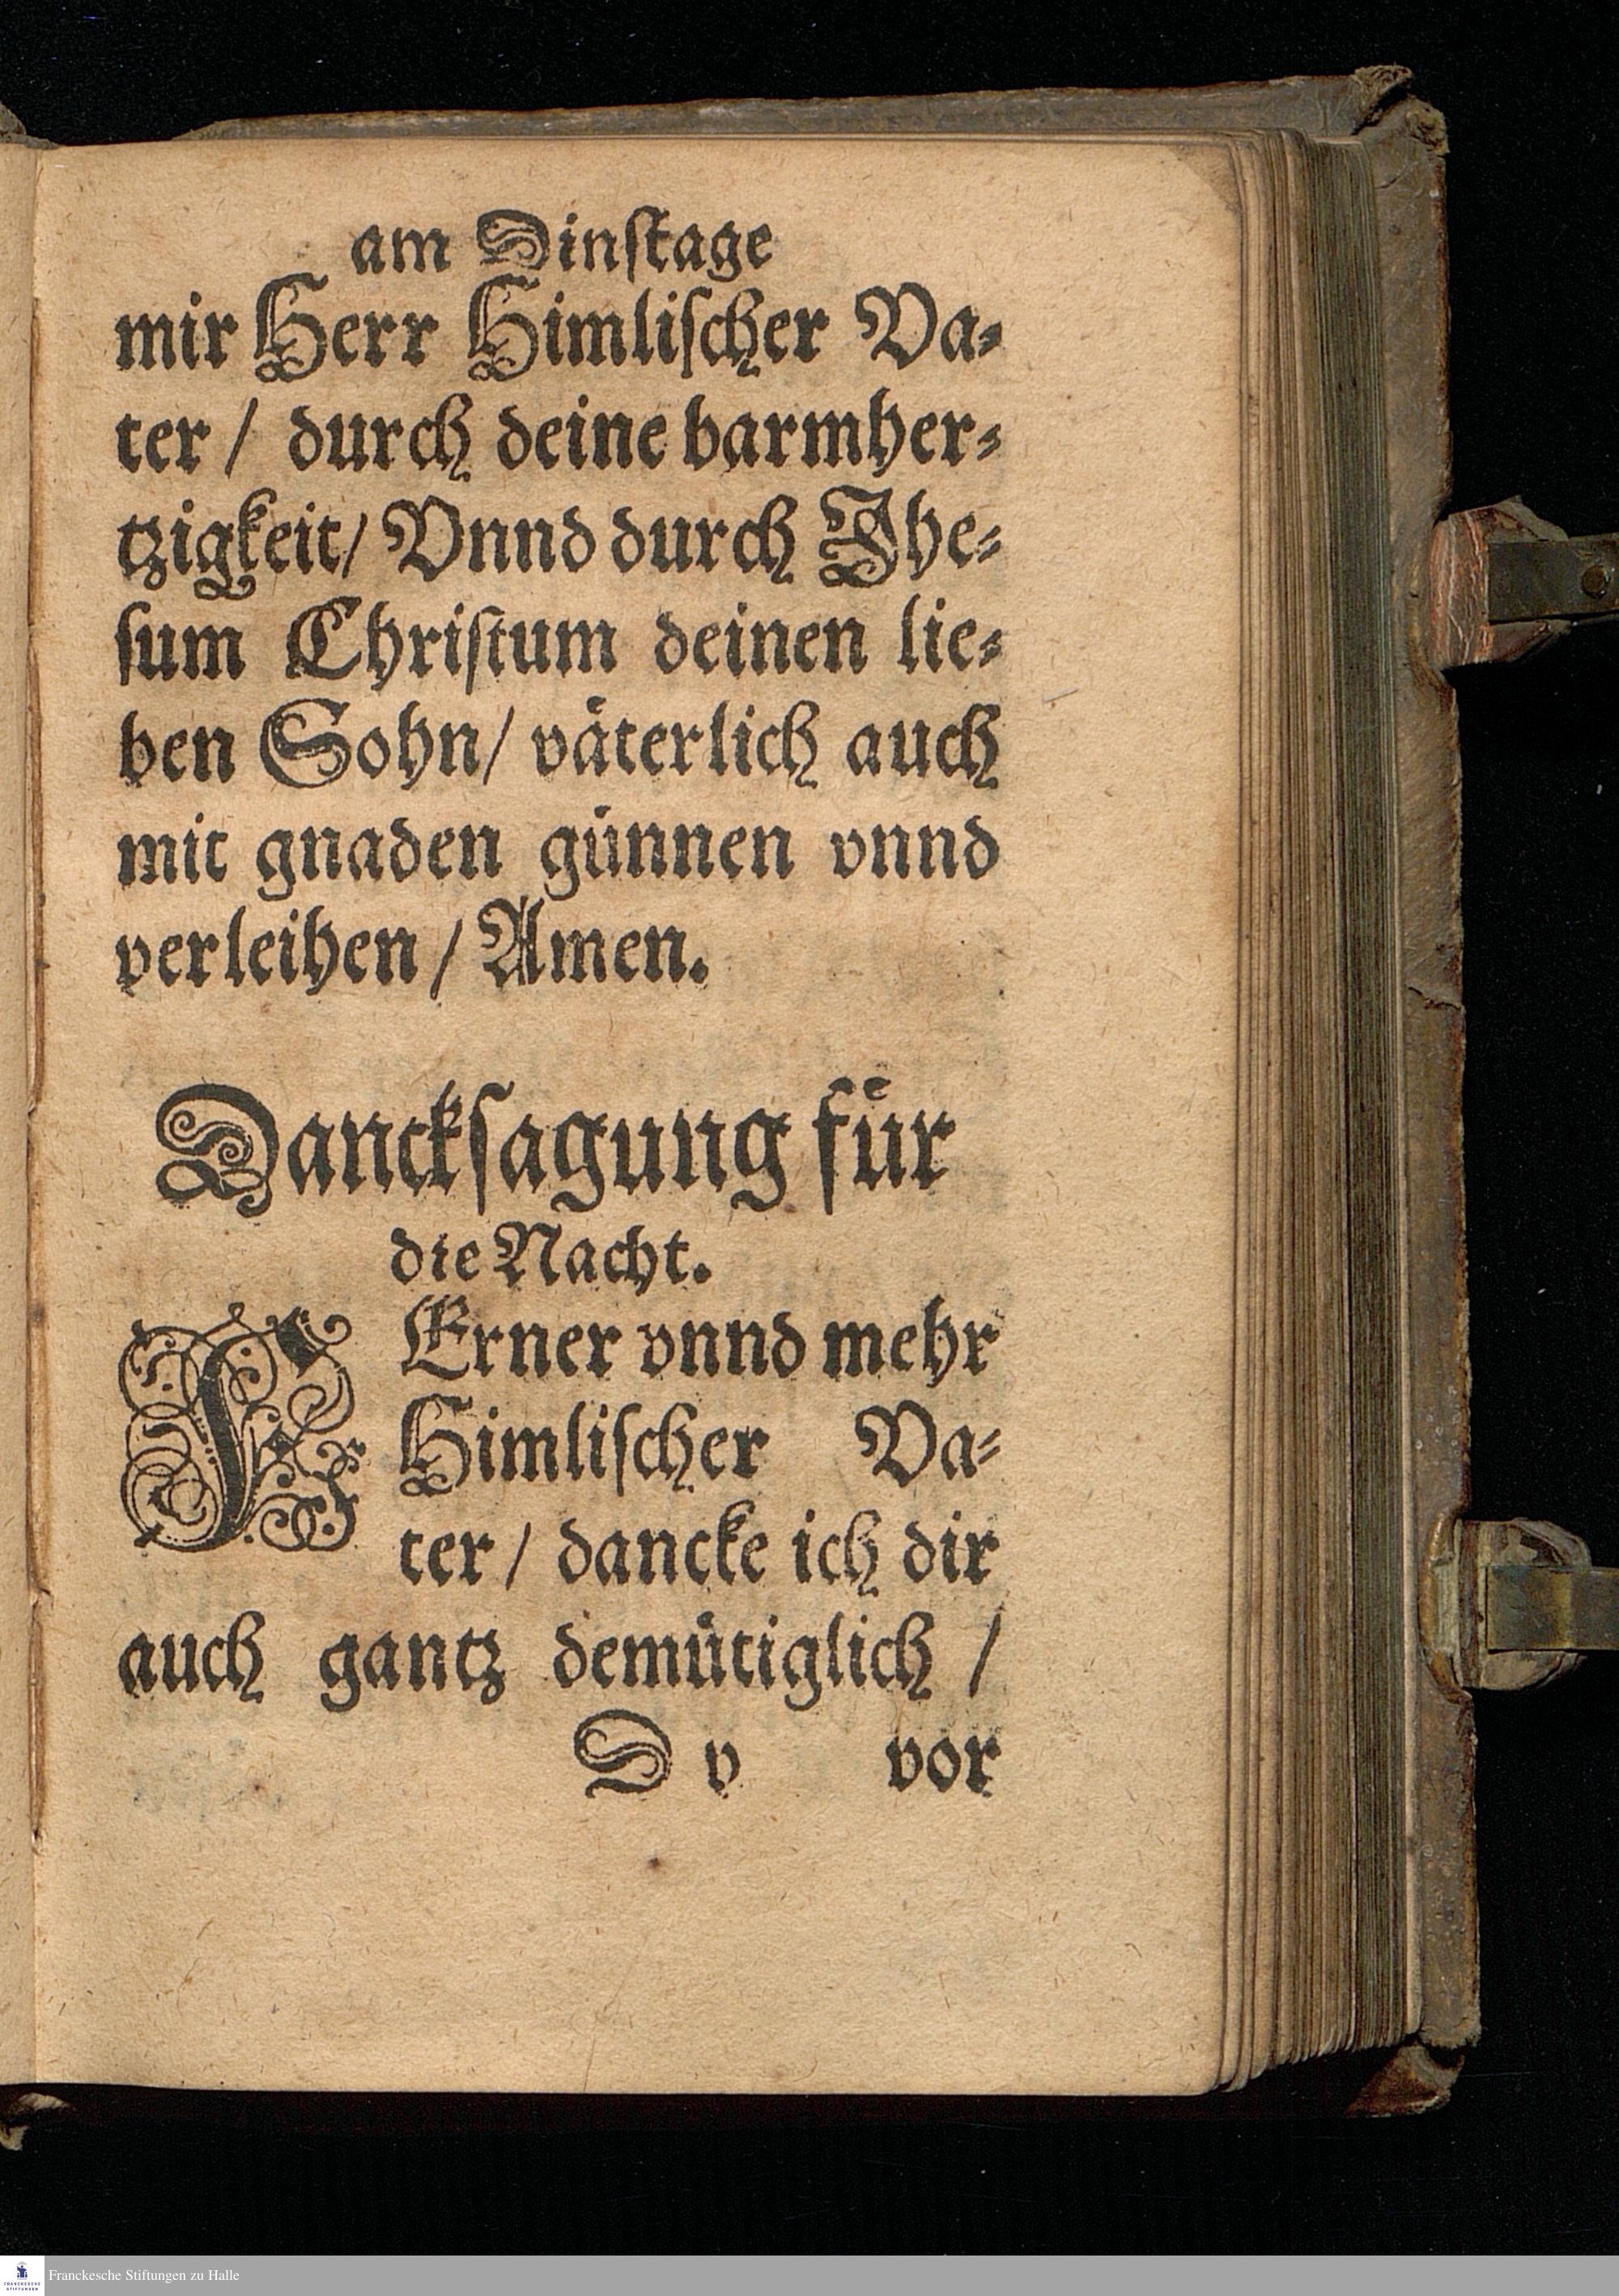 am Dinſtage
mir Herr Himliſcher Va⸗
ter / durch deine barmher⸗
tzigkeit/ Vnnd durch Jhe⸗
ſum Chriſtum deinen lie⸗
ben Sohn/ vaͤterlich auch
mit gnaden guͤnnen vnnd
verleihen / Amen.
Danckſagung fuͤr
die Nacht.
FErner vnnd mehr
Himliſcher Va⸗
ter / dancke ich dir
auch gantz demuͤtiglich /
D v vor
FRANCKESCHE STIFTUNGEN
Franckesche Stiftungen zu Halle